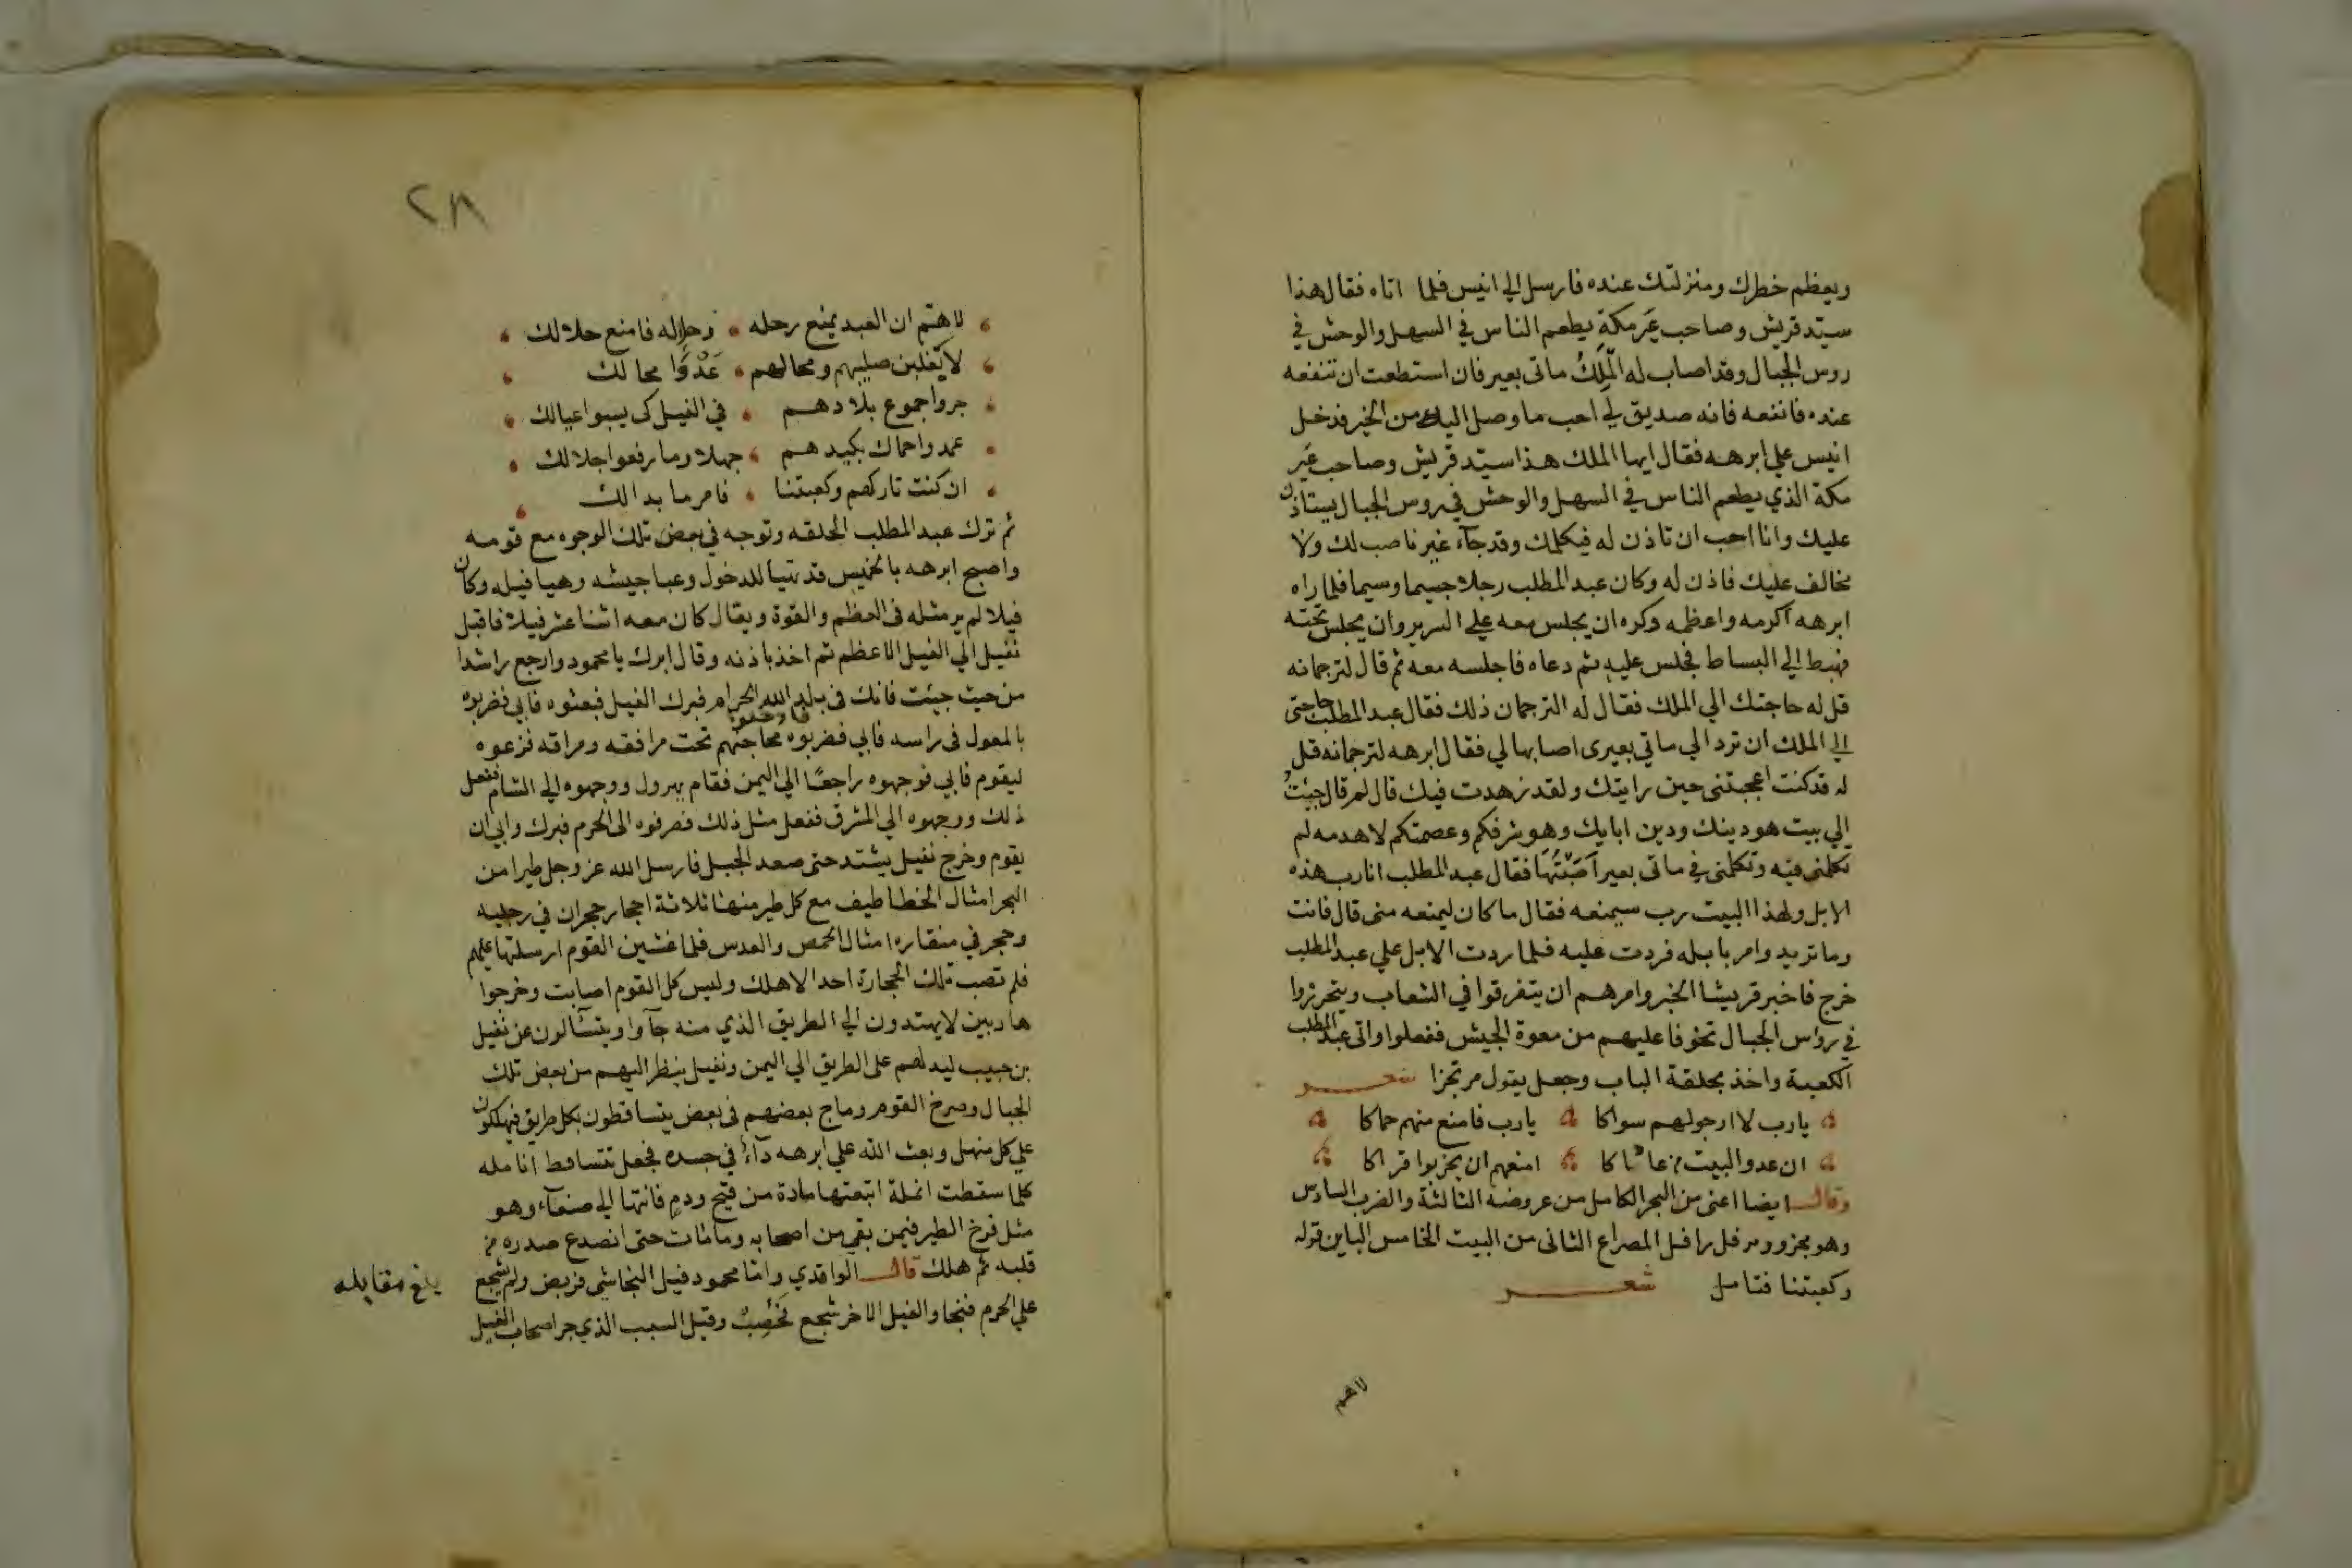 ويعظم خطرك ومنزلتك عنده فارسل الي انيس فلما اتاه فقال هذا
سيّد قريش وصاحب عَير مكةِ يطعم الناس في السهل والوحش في
روس الجبال وقد اصاب له الَملِكُ ماتى بعير فان استطعت ان تنفعه
عنده فانفعه فانه صديق لي احب ما وصل اليه من الخير فدخل
انيس علي ابرهه فقال ايها الملك هذا سيّد قريش وصاحب عَير
مكة الذي يطعم الناس في السهل والوحش في روس الجبال يستاذن
عليك وانا احب ان تاذن له فيكلمك وقد جآء غير ناصب لك ولا
مخالف عليك فاذن له وكان عبد المطلب رجلا جسيما وسيما فلما راه
ابرهه اكرمه واعظمه وكره ان يجلس معه علي السرير وان يجلس تحته
فهبط الي البساط فجلس عليه ثم دعاه فاجلسه معه ثم قال لترجمانه
قل له حاجتك الي الملك فقال له الترجمان ذلك فقال عبد المطلب حاجتى
الي الملك ان ترد الي ماتي بعيرى اصابها لي فقال ابرهه لترجمانه قل
له قد كنت اعجبتنى حين رايتك ولقد زهدت فيك قال لم قال جيئتُ
الي بيت هو دينك ودين ابايك وهو شرفكم وعصمتكم لاهدمه لم
تكلمنى فيه وتكلمنى في ماتى بعير اَصَبْتُهَا فقال عبد المطلب انا رب هذه
الابل ولهذا البيت رب سيمنعه فقال ما كان ليمنعه منى قال فانت
وما تريد وامر بابله فردت عليه فلما ردت الابل علي عبد المطلب
خرج فاخبر قريشا الخبر وامرهم ان يتفرقوا في الشعاب ويتحرزوا
في رؤاس الجبال تخوفا عليهم من معوة الجيش ففعلوا واتى عبد المطلب
الكعبة واخذ بحلقة الباب وجعل يتول مرتجزا شعر
يارب لا ارجو لهم سواكا يارب فامنع منهم حماكا
ان عدو البيت من عاداكا امنعهم ان يخربوا قراكا
وقال ايضا اعنى من البحر الكامل من عروضه الثالثة والضرب السادس
وهو مجزوو مرفل رافل المصراع الثانى من البيت الخامس الباين قوله
وكعبتنا فتامل شعر
لاهم
٢٨
لاهتم ان العبد يمنع رحله وحلاله فامنع حلالك
لا يغلبن صليبهم ومحالهم عَدْوًا محالك
جروا جموع بلادهم في الفيل كى يسبوا عيالك
عمدوا حماك بكيدهم جهلا وما رقعوا جلالك
ان كنت تاركهم وكعبتنا فامر ما بدالك
ثم ترك عبد المطلب الحلقه وتوجه في بعض تلك الوجوه مع قومه
واصبح ابرهه بالخميس قد تهيا للدخول وعبا جيشه وهيا فيله وكان
فيلا لم ير مثله فى العظم والقوة ويقال كان معه اثنا عشر فيلا فاقبل
نفيل الي الفيل الاعظم ثم اخذ باذنه وقال ابرك يا محمود وارجع راشدا
من حيث جيئت فانك فى بلد الله الحرام فبرك الفيل فبعثوه فابي فضربوه
بالمعول فى راسه فابي فادخلوا محاجنهم تحت مرافقه ومراقه فنزعوه
ليقوم فابي فوجهوه راجعًا الي اليمن فقام يهرول ووجهوه الي الشام ففعل
ذلك ووجهوه الي المشرق ففعل مثل ذلك فصرفوه الى الحرم فبرك وابي ان
يقوم وخرج نفيل يشتد حتى صعد الجبل فارسل الله عز وجل طيرا من
البحر امثال الخطاطيف مع كل طير منها ثلاثة احجار حجران في رجليه
وحجر في منقاره امثال الحمص والعدس فلما غشين القوم ارسلتها عليهم
فلم تصب تلك الحجارة احد الا هلك وليس كل القوم اصابت وخرجوا
هاربين لا يهتدون الي الطريق الذي منه جآوا ويتسآلون عن نفيل
بن حبيب ليدلهم على الطريق الي اليمن ونفيل ينظر اليهم من بعض تلك
الجبال وصرخ القوم وماج بعضهم فى بعض يتساقطون بكل طريق فيهلكون
علي كل منهل وبعث الله علي ابرهه دآءً في جسده فجعل تتساقط انامله
كلما سقطت انملة اتبعتها مادة من قيح ودم فانتها الي صنعآء وهو
مثل فرخ الطير فيمن بقي من اصحابه وما مات حتى انصدع صدره من
قلبه ثم هلك قال الواقدي واما محمود فيل النجاشي فربض ولم يشجع
علي الحرم فنجا والفيل الاخر شجع فَحُصِبَ وقيل السبب الذي جر اصحاب الفيل
بلغ مقابله